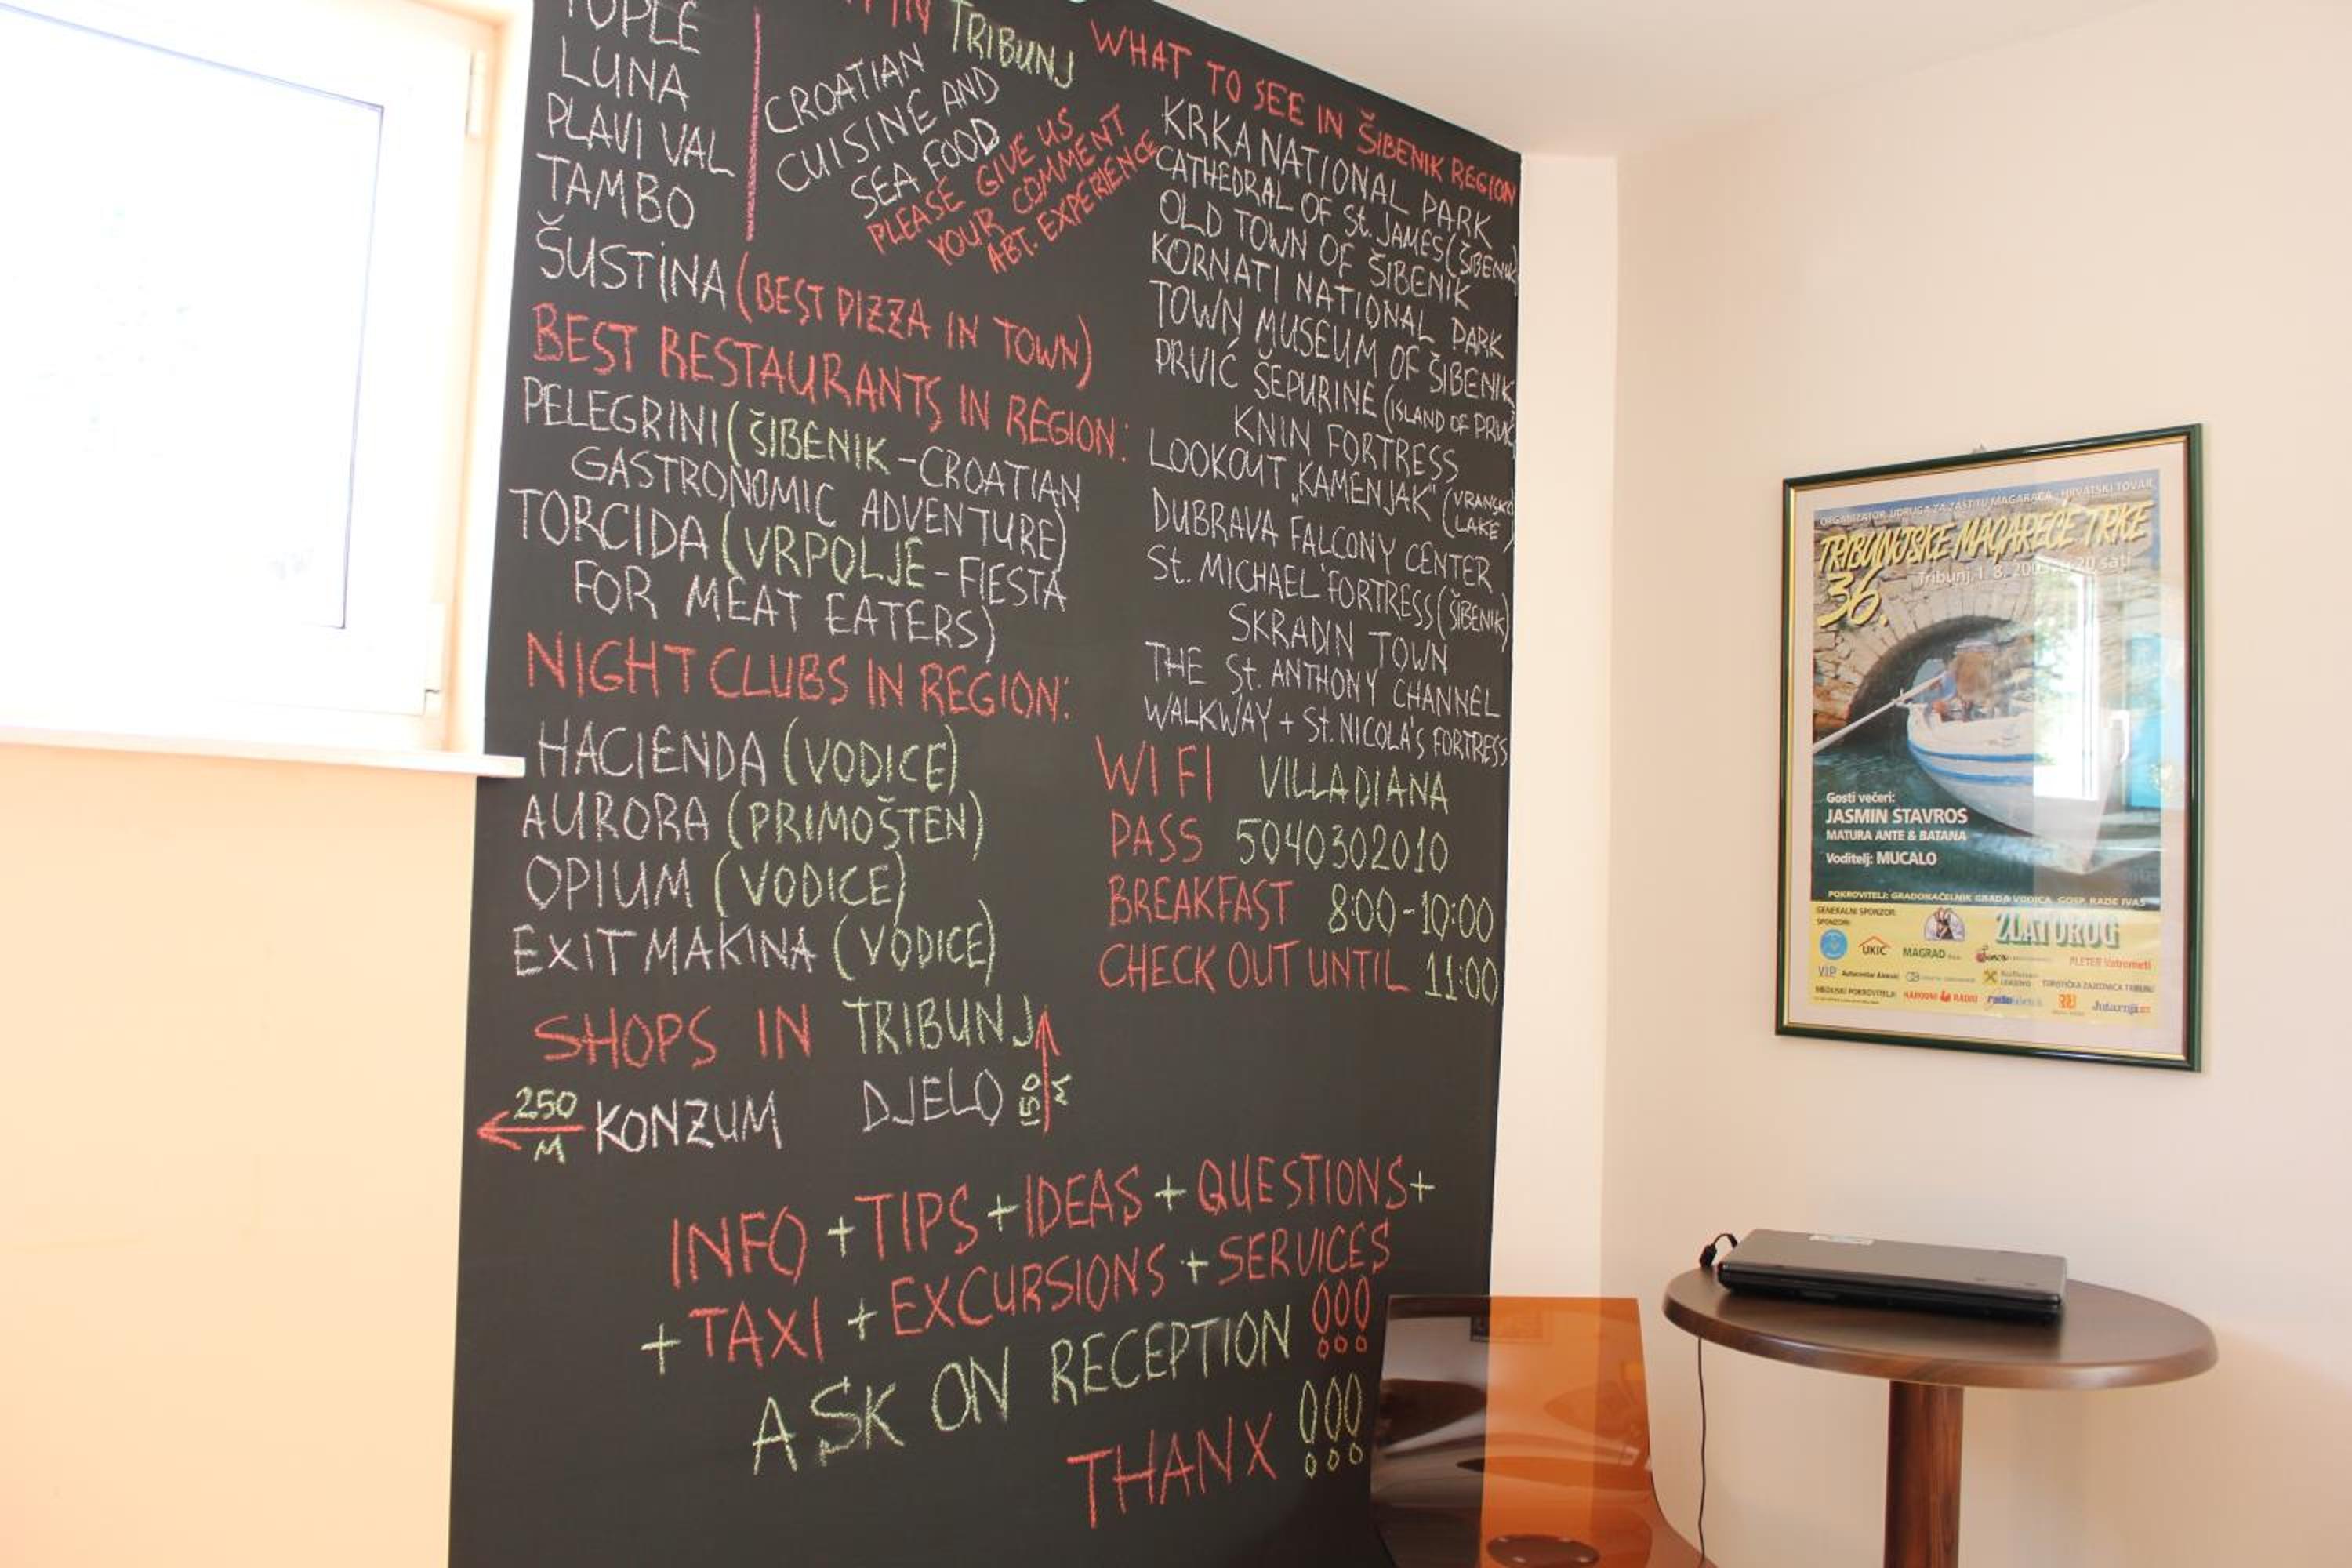 TOPLE
LUNA
PLAVI VAL
TAMBO
ŠUSTINA (BEST PIZZA IN TOWN)
IN TRIBUNJ
CROATIAN
CUISINE AND
SEA FOOD
PLEASE GIVE US
YOUR COMMENT
ABT. EXPERIENCE
BEST RESTAURANTS IN REGION:
PELEGRINI (ŠIBENIK - CROATIAN
GASTRONOMIC ADVENTURE)
TORCIDA (VRPOLJE - FIESTA
FOR MEAT EATERS)
NIGHT CLUBS IN REGION:
HACIENDA (VODICE)
AURORA (PRIMOŠTEN)
OPIUM (VODICE)
EXIT MAKINA (VODICE)
SHOPS IN TRIBUNJ
250 M KONZUM DJELO 150 M
WHAT TO SEE IN ŠIBENIK REGION
KRKA NATIONAL PARK
CATHEDRAL OF St. JAMES (ŠIBENIK)
OLD TOWN OF ŠIBENIK
KORNATI NATIONAL PARK
TOWN MUSEUM OF ŠIBENIK
PRVIĆ ŠEPURINE (ISLAND OF PRVIĆ
KNIN FORTRESS
LOOKOUT „KAMENJAK" (VRANSKO
LAKE)
DUBRAVA FALCONY CENTER
St. MICHAEL FORTRESS (ŠIBENIK)
SKRADIN TOWN
THE St. ANTHONY CHANNEL
WALKWAY + St. NICOLA'S FORTRESS
WIFI VILLA DIANA
PASS 5040302010
BREAKFAST 8:00-10:00
CHECK OUT UNTIL 11:00
INFO + TIPS + IDEAS + QUESTIONS +
+ TAXI + EXCURSIONS + SERVICES
ASK ON RECEPTION !!!
THANX !!!
ORGANIZATOR: UDRUGA ZA ZAŠTITU MAGARACA - HRVATSKI TOVAR
TRIBUNJSKE MAGAREĆE TRKE
36.
Tribunj, 1. 8. 20 sati
Gosti večeri:
JASMIN STAVROS
MATURA ANTE & BATANA
Voditelj: MUCALO
POKROVITELJ: GRADONAČELNIK GRADA VODICA, GOSP. RADE IVAS
GENERALNI SPONZOR:
ZLATOROG
SPONZORI:
UKIC
MAGRAD
PLETER Vatrometi
VIP
TURISTIČKA ZAJEDNICA TRIBUNJ
MEDIJSKI POKROVITELJI:
NARODNI RADIO
Jutarnji